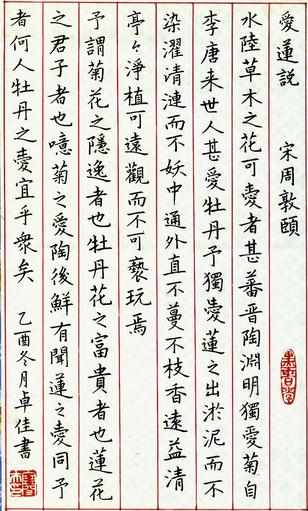 愛蓮說 宋 周敦頤
水陸草木之花可愛者甚蕃晉陶淵明獨愛菊自
李唐来世人甚愛牡丹予獨愛蓮之出淤泥而不
染濯清漣而不妖中通外直不蔓不枝香遠益清
亭々淨植可遠觀而不可褻玩焉
予謂菊花之隱逸者也牡丹花之富貴者也蓮花
之君子者也噫菊之愛陶後鮮有聞蓮之愛同予
者何人牡丹之愛宜乎衆矣 乙酉冬月卓佳書